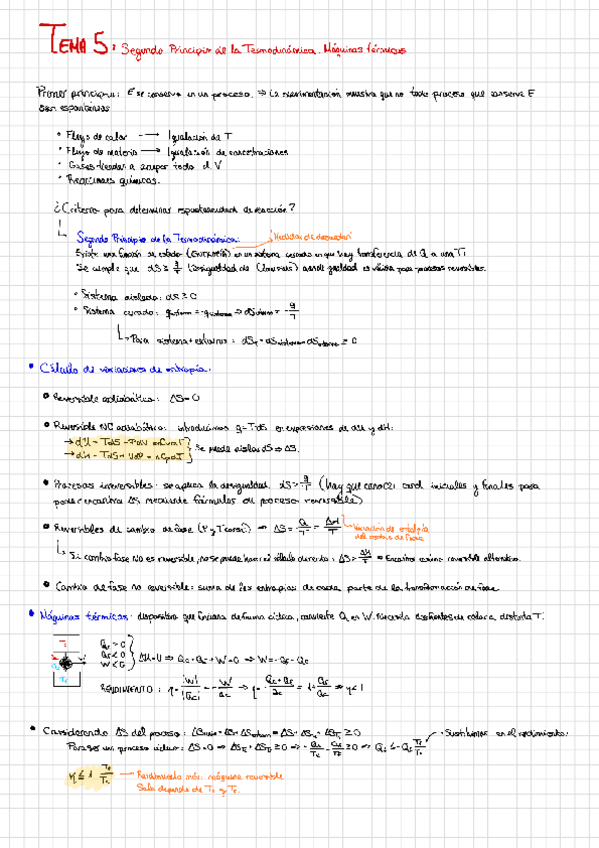 TEMA 5: Segundo Principio de la Termodinámica. Máquinas térmicas
Primer principio: E se conserva en un proceso. ⇒ La experimentación muestra que no todo proceso que conserva E
sean espontáneos
• Flujo de calor → Igualación de T
• Flujo de materia → Igualación de concentraciones
• Gases tienden a ocupar todo el V
• Reacciones químicas.
¿Criterio para determinar espontaneidad de reacción?
Segundo Principio de la Termodinámica: → Medidas de desorden
Existe una función de estado (ENTROPÍA) en un sistema cerrado en que hay transferencia de Q a una T:
Se cumple que dS ≥ q/T (desigualdad de Clausius) donde igualdad es válida para procesos reversibles.
• Sistema aislado: dS ≥ 0
• Sistema cerrado:
Para sistema + entorno:
• Cálculo de variaciones de entropía:
• Reversible adiabático: ΔS = 0
• Reversible NO adiabático: introducimos q = TdS en expresiones de dU y dH:
→ dU = TdS - PdV = nCvdT
→ dH = TdS + VdP = nCpdT
Se puede aislar dS ⇒ ΔS.
• Procesos irreversibles: se aplica la desigualdad. dS > q/T (hay que conocer cond. iniciales y finales para
poder encontrar ΔS mediante fórmulas de proceso reversible)
• Reversibles de cambio de fase (P y T const) ⇒ ΔS = Q/T = ΔH/T → Variación de entalpía
del cambio de fase
Si cambio fase NO es reversible, no se puede hacer el cálculo directo: ΔS > ΔH/T ⇒ Encontrar camino reversible alternativo.
• Cambio de fase no reversible: suma de las entropías de cada parte de la transformación de fase.
• Máquinas térmicas: dispositivo que funciona de forma cíclica, convierte Q en W.
Qc > 0
Qf < 0
W < 0
ΔU = 0 ⇒ Qc + Qf + W = 0 ⇒ W = -Qf - Qc
RENDIMIENTO: η = |W|/|Qc| = -W/Qc ⇒ η = Qc + Qf/Qc = 1 + Qf/Qc ⇒ η < 1
• Considerando ΔS del proceso:
Para ser un proceso cíclico: • Sustituimos en el rendimiento:
η ≤ 1 - Tf/Tc → Rendimiento máx: máquina reversible
Solo depende de Tc y Tf.